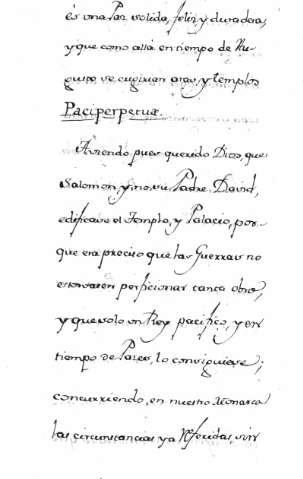 és una Paz solida, feliz y duradera,
y que como allá en tiempo de Au-
gusto se erijan aras, y templos
Paci perpetuæ.
Aviendo pues querido Dios, que
Salomon, y no su Padre David,
edificase el Templo, y Palacio, por-
que era preciso que las Guerras no
estorvasen perficionar tanta obra,
y que solo un Rey pacifico, y en
tiempo de Pazes, lo consiguiese;
concurriendo, en nuestro Monarca
las circunstancias ya referidas, sin